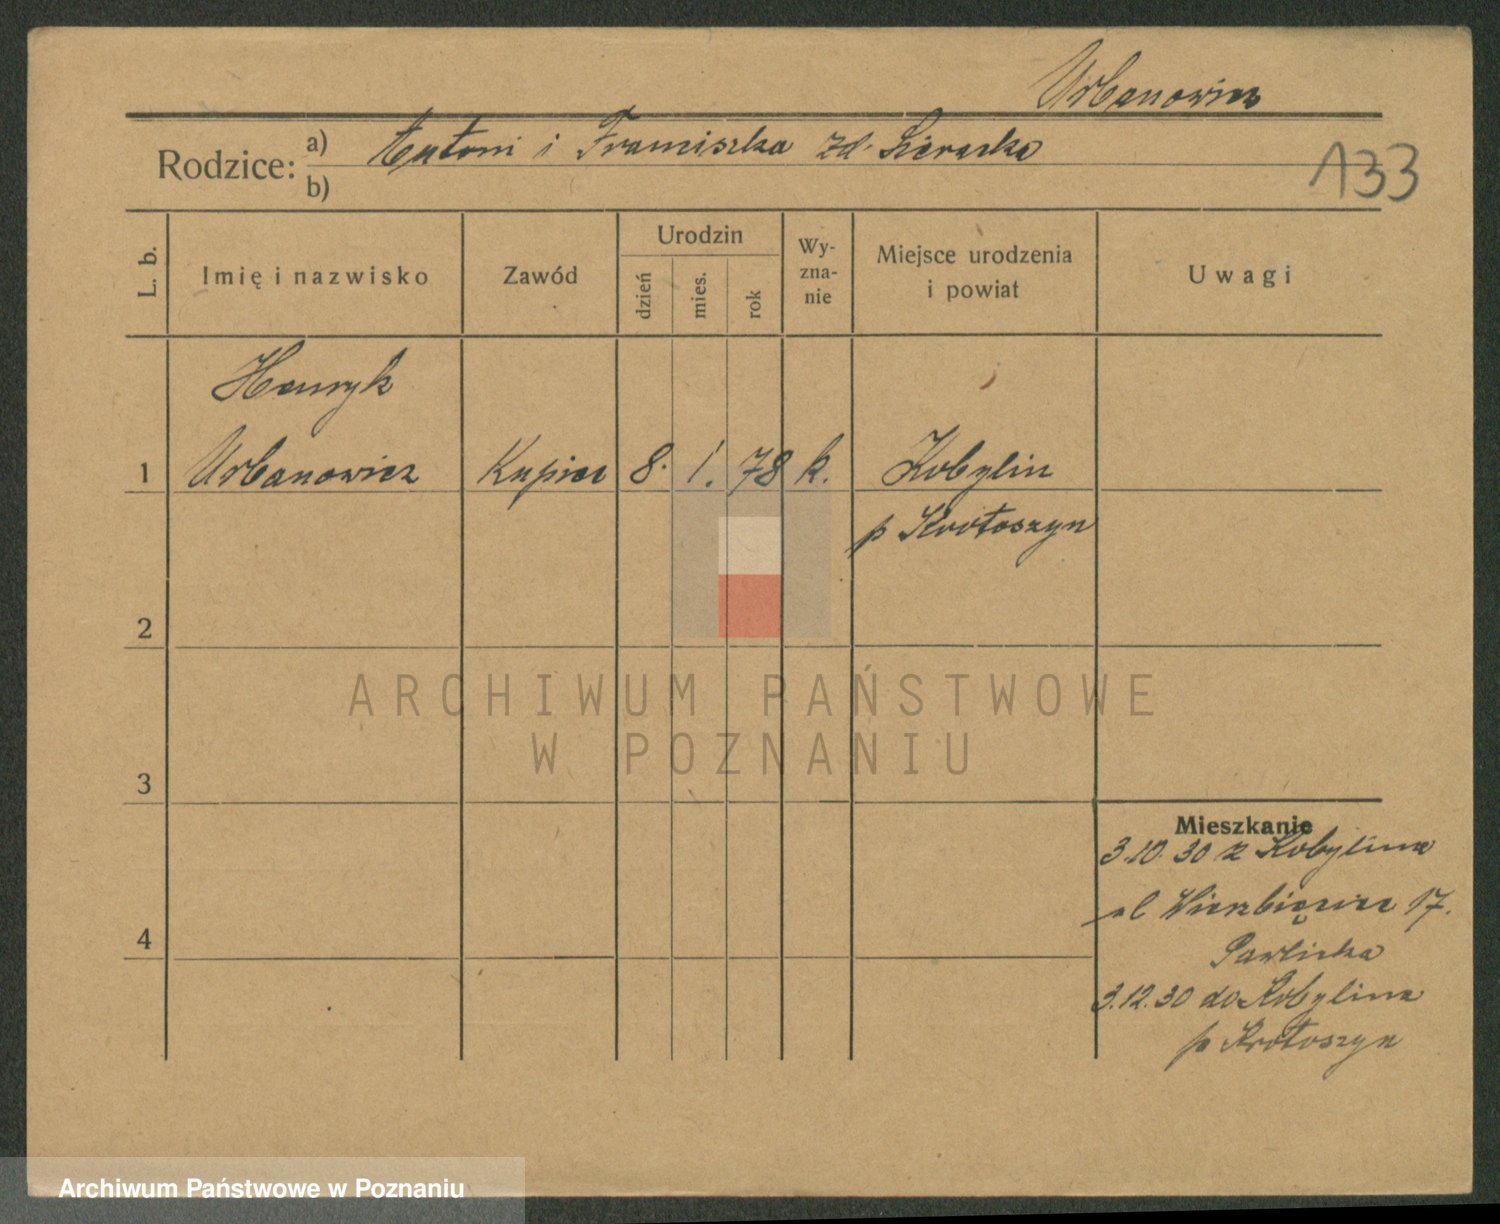 Urbanowicz
Rodzice: a) Antoni i Franciszka zd. Sieracka
b)
133
L. b.
Imię i nazwisko
Zawód
Urodzin
dzień
mies.
rok
Wy-
zna-
nie
Miejsce urodzenia
i powiat
Uwagi
Henryk
1 Urbanowicz Kupiec 8. 1. 78 k. Kobylin
p Krotoszyn
2
ARCHIWUM PAŃSTWOWE
W POZNANIU
3
Mieszkanie
3.10.30 z Kobylina
ul Wierzbięcice 17.
Pawlicka
4
3.12.30 do Kobylina
p Krotoszyn
Archiwum Państwowe w Poznaniu